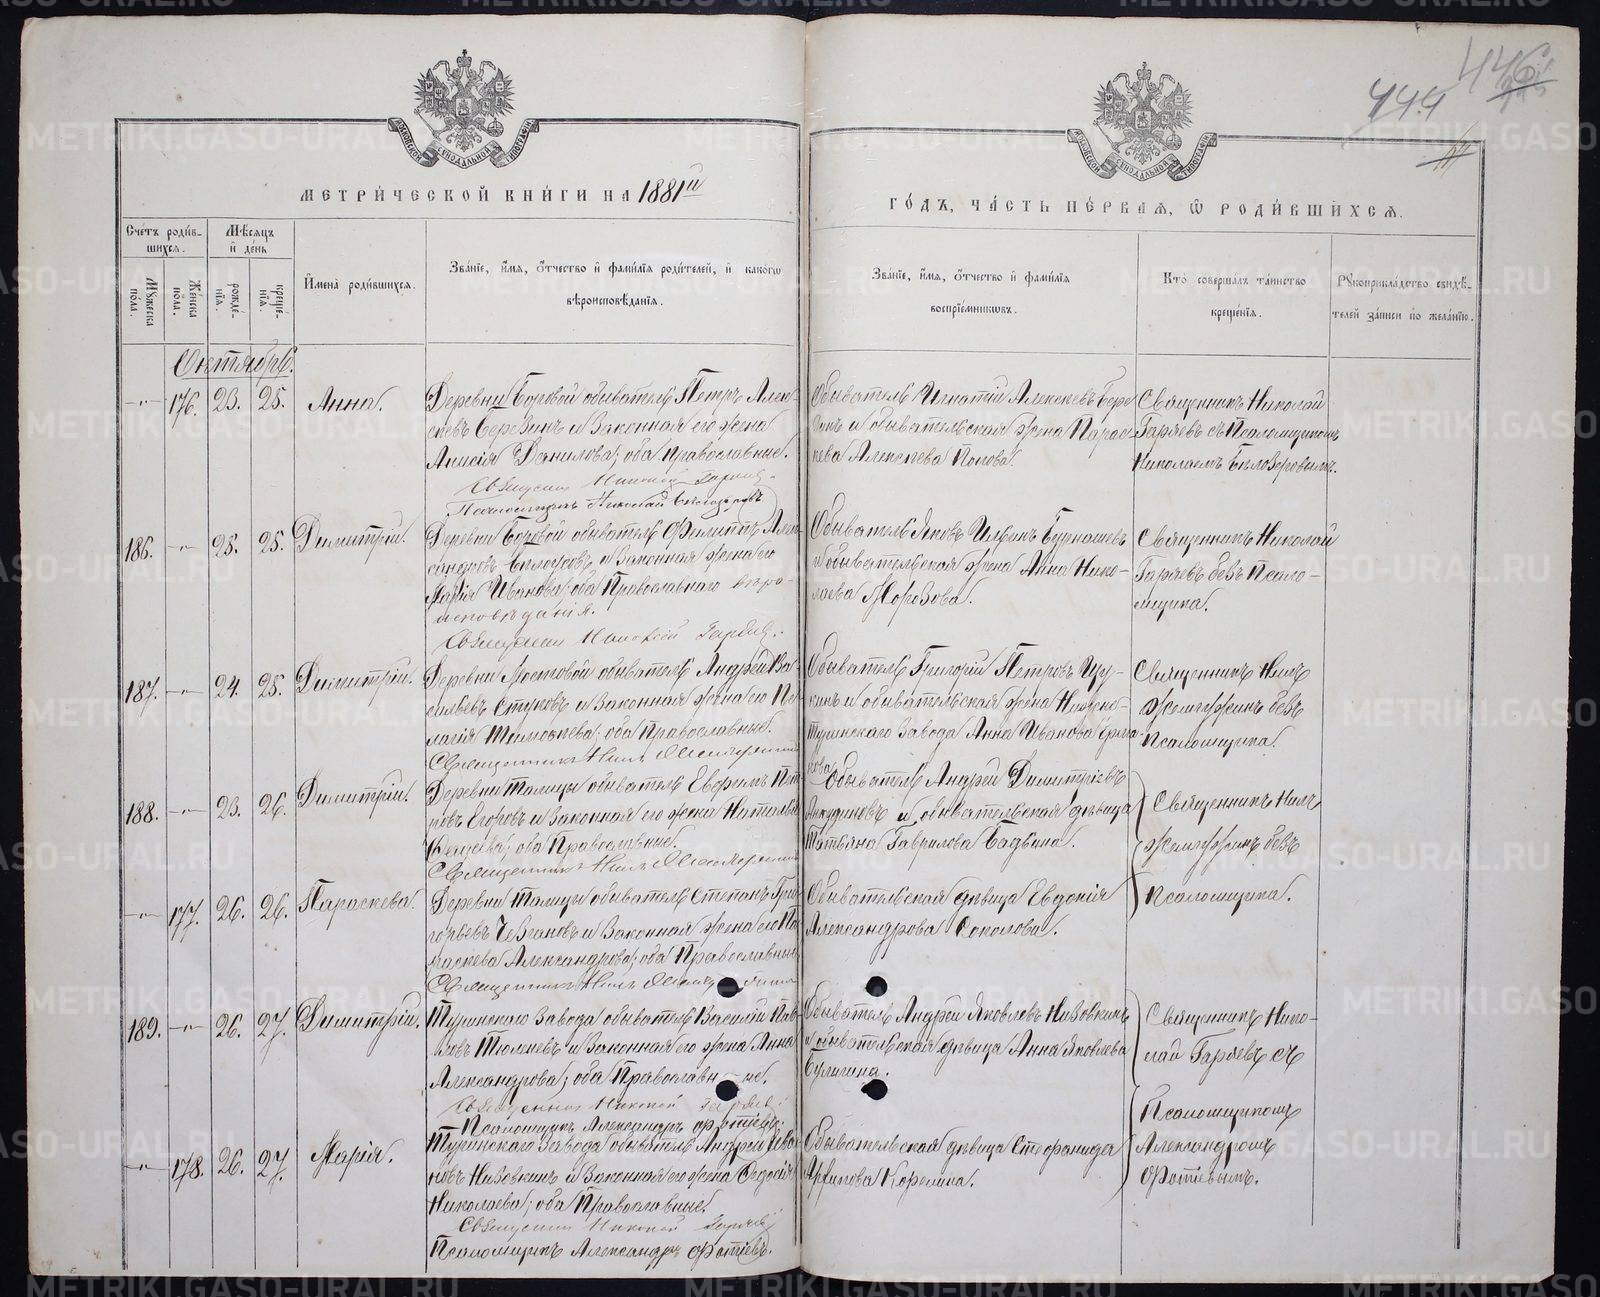 МЕТРИ́ЧЕСКОЙ КНИ́ГИ НА 1881й
ГО́ДЪ, ЧА́СТЬ ПЕ́РВАЯ, Ѡ РОДИ́ВШИХСЯ.
444
Сче́тъ роди́в-
шихся.
Мѣ́сяцъ
и̂ де́нь
Мꙋ́жеска
по́ла.
Же́нска
по́ла.
рожде́-
нїѧ.
креще́-
нїѧ.
И̂мена̀ роди́вшихся.
Зва́нїе, и̂́мя, ѻ̂́тчество и̂ фами́лїя роди́телей, и̂ како́гѡ
вѣроисповѣ́данїя.
Зва́нїе, и̂́мя, ѻ̂́тчество и̂ фами́лїя
воспрїе́мниковъ.
Кто̀ соверша́лъ та́инство
креще́нїя.
Рꙋкоприкла́дство свидѣ́-
телей за́писи по жела́нїю.
Октябрь.
-"- 176. 23. 25. Анна.
Деревни Боровой обыватель Петръ Алек-
сѣевъ Березинъ и законная его жена
Анисія Данилова; оба православные.
Священникъ Николай Гаряевъ
Псаломщикъ Николай Бѣлозеровъ
Обыватель Игнатій Алексѣевъ Бере-
зинъ и обывательская жена Парас-
кева Алексѣева Попова.
Священникъ Николай
Гаряевъ съ Псаломщикомъ
Николаемъ Бѣлозеровымъ.
186. -"- 25. 25. Димитрій.
Деревни Боровой обыватель Филиппъ Алек-
сандровъ Бѣлоусовъ и законная жена его
Марія Иванова; оба Православнаго вѣро-
исповѣданія.
Священникъ Николай Гаряевъ.
Обыватель Яковъ Ильинъ Бурнашевъ
и обывательская жена Анна Нико-
лаева Морозова.
Священникъ Николай
Гаряевъ безъ Псало-
мщика.
187. -"- 24. 25. Димитрій.
Деревни Мостовой обыватель Андрей Ва-
сильевъ Стуковъ и законная жена его Пе-
лагія Тимоѳеева; оба православные.
Священникъ Нилъ
Обыватель Григорій Петровъ Щу-
кинъ и обывательская жена Нижне-
Туринскаго завода Анна Иванова
Священникъ Нилъ
безъ
Псаломщика.
188. -"- 23. 26. Димитрій.
Деревни Талицы обыватель Евфимъ Пет-
ровъ Егоровъ и законная его жена Наталья
оба Православные.
Священникъ Нилъ
Обыватель Андрей Димитріевъ
и обывательская дѣвица
Татьяна Гаврилова Бадьина.
Священникъ Нилъ
безъ
Псаломщика.
-"- 177. 26. 26. Параскева.
Деревни Талицы обыватель Степанъ Гри-
горьевъ и законная жена его Па-
раскева Александрова; оба Православные
Священникъ Нилъ
Обывательская дѣвица Евдокія
Александрова Соколова.
189. -"- 26. 27. Димитрій.
Туринскаго завода обыватель Василій Пав-
ловъ Тюленевъ и законная его жена Анна
Александрова; оба Православн—ые.
Священникъ Николай Гаряевъ.
Псаломщикъ Александръ Фотіевъ.
Обыватель Андрей Яковлевъ Низовкинъ
и обывательская дѣвица Анна Яковлева
Булыгина.
Священникъ Нико-
лай Гаряевъ съ
Псаломщикомъ
Александромъ
Фотіевымъ.
-"- 178. 26. 27. Марія.
Туринскаго завода обыватель Андрей Ива-
новъ Низовкинъ и законная его жена Ѳедосія
Николаева; оба Православные.
Священникъ Николай Гаряевъ
Псаломщикъ Александръ Фотіевъ.
Обывательская дѣвица Стефанида
Архипова Корелина.
METRIKI.GASO-URAL.RU